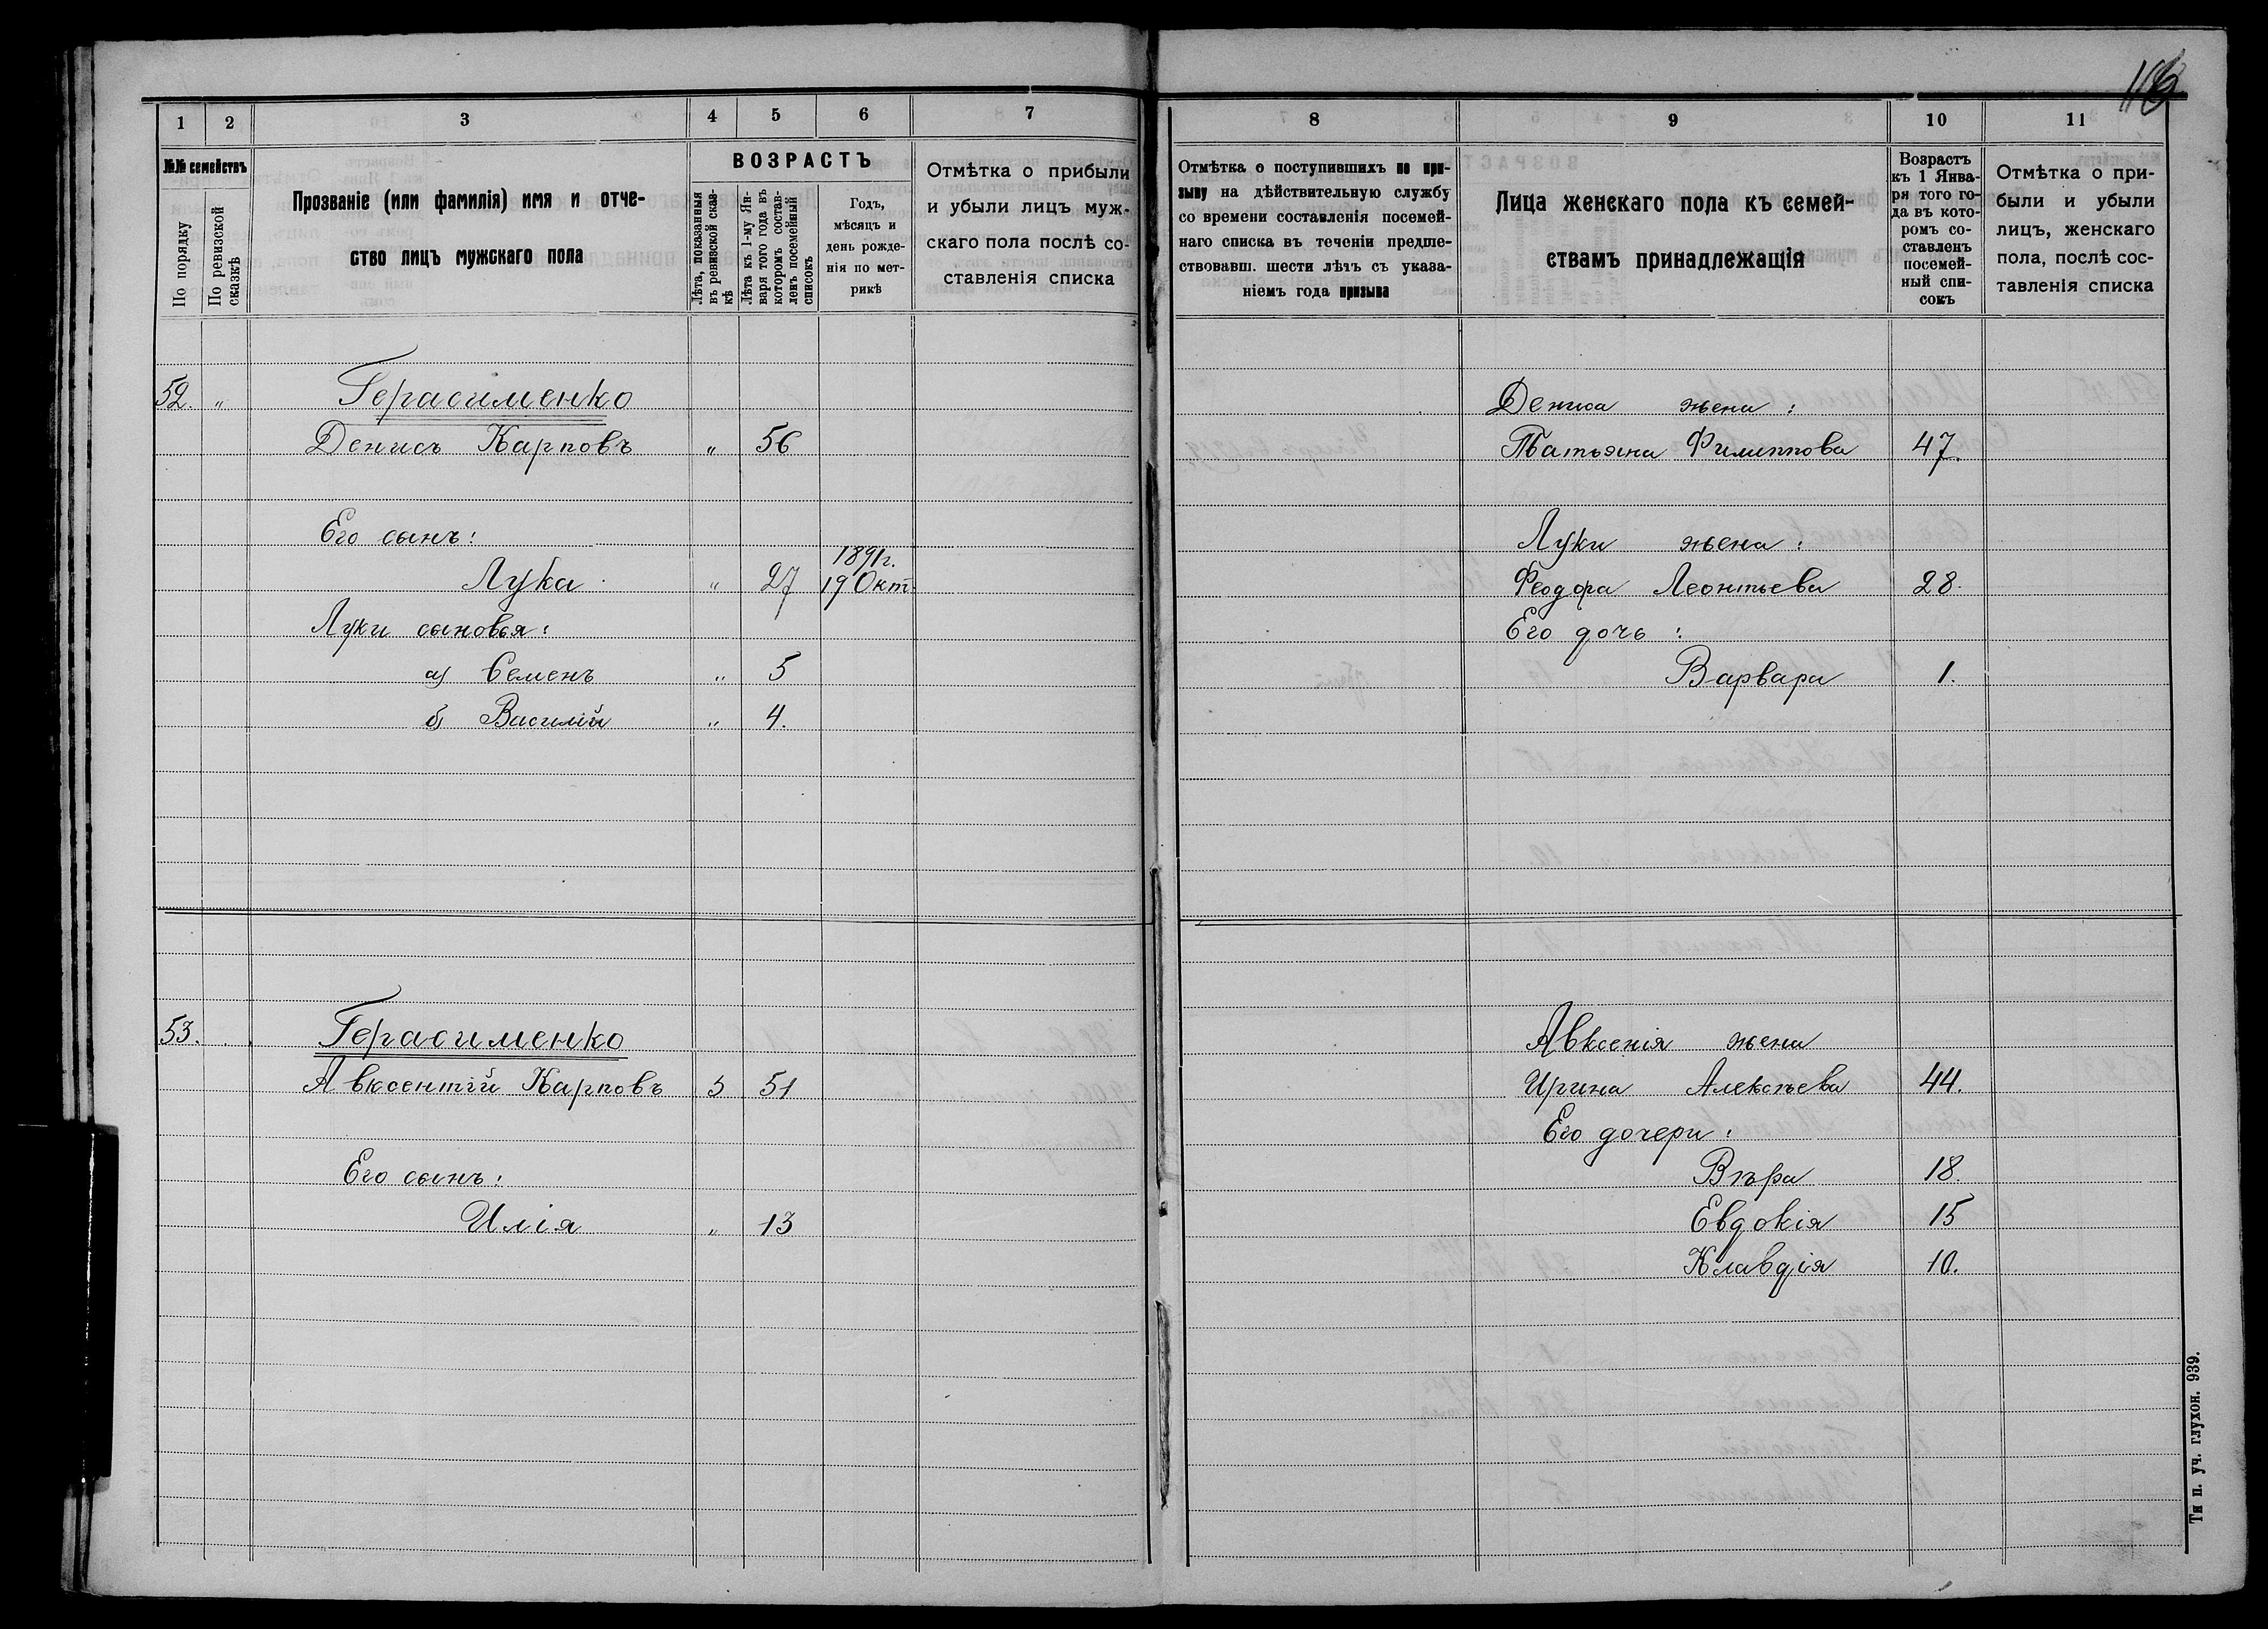 116
1 2 3 4 5 6 7
№№ семействъ
По порядку
По ревизской сказкѣ
Прозваніе (или фамилія) имя и отче-
ство лицъ мужскаго пола
ВОЗРАСТЪ
Лѣта, показанныя
въ ревизской сказ-
кѣ
Лѣта къ 1-му Ян-
варя того года въ
которомъ состав-
ленъ посемейный
списокъ
Годъ,
мѣсяцъ и
день рожде-
нія по мет-
рикѣ
Отмѣтка о прибыли
и убыли лицъ муж-
скаго пола послѣ со-
ставленія списка
52. " Герасименко
Денисъ Карповъ " 56
Его сынъ:
1891г.
Лука " 27 19 Окт.
Луки сыновья:
а) Семенъ " 5
б) Василій " 4.
53. Герасименко
Авксентій Карповъ 5 51
Его сынъ:
Илія " 13
8 9 10 11
Отмѣтка о поступившихъ по при-
зыву на дѣйствительную службу
со времени составленія посемей-
наго списка въ теченіи предше-
ствовавш. шести лѣтъ съ указа-
ніемъ года призыва
Лица женскаго пола къ семей-
ствамъ принадлежащія
Возрастъ
къ 1 Янва-
ря того го-
да въ кото-
ромъ со-
ставленъ
посемей-
ный спи-
сокъ
Отмѣтка о при-
были и убыли
лицъ, женскаго
пола, послѣ сос-
тавленія списка
Дениса жена:
Татьяна Филиппова 47.
Луки жена:
Феодора Леонтьева 28.
Его дочь:
Варвара 1.
Авксенія жена
Ирина Алексѣева 44.
Его дочери:
Вѣра 18.
Евдокія 15
Клавдія 10.
Ти п. уч. глухон. 939.